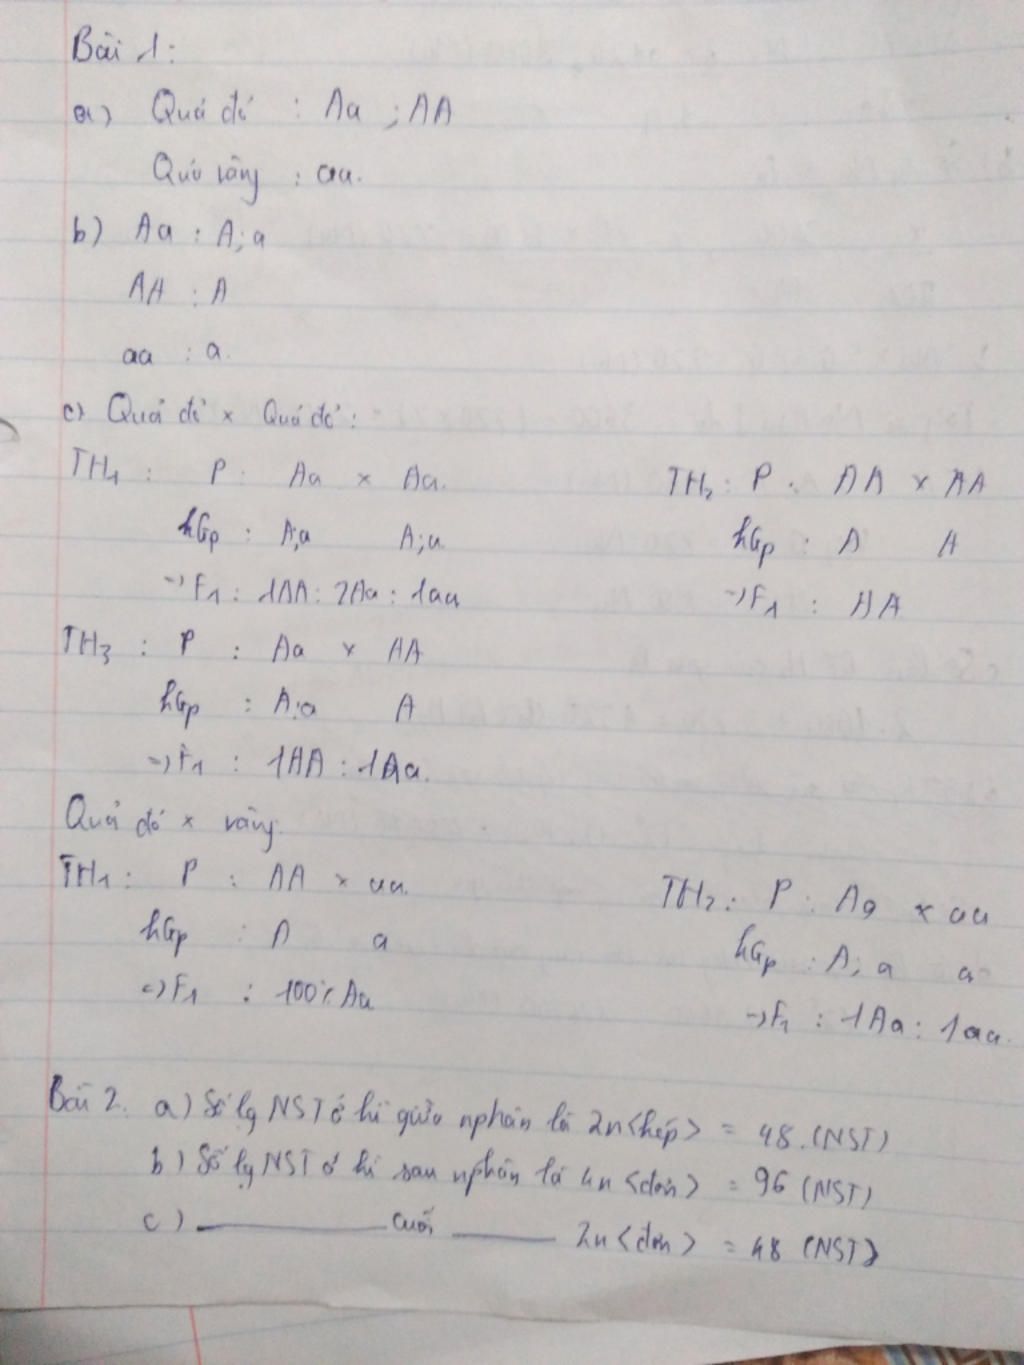 Bài 1:
a) Quả đỏ : Aa ; AA
Quả vàng : aa.
b) Aa : A; a
AA : A
aa : a.
c) Quả đỏ x Quả đỏ :
TH1 : P : Aa x Aa.
hGp : A;a A;a
=> F1 : 1AA : 2Aa : 1aa
TH2 : P : AA x AA
hGp : A A
=> F1 : AA
TH3 : P : Aa x AA
hGp : A;a A
=> F1 : 1AA : 1Aa.
Quả đỏ x vàng.
TH1 : P : AA x aa.
hGp : A a
=> F1 : 100% Aa
TH2 : P : Aa x aa
hGp : A; a a
=> F1 : 1Aa : 1aa.
Bài 2. a) Số lg NST ở kì giữa nphân là 2n<kép> = 48. (NST)
b) Số lg NST ở kì sau nphân là 4n <đơn> = 96 (NST)
c) ———— cuối ———— 2n <đơn> = 48 (NST)